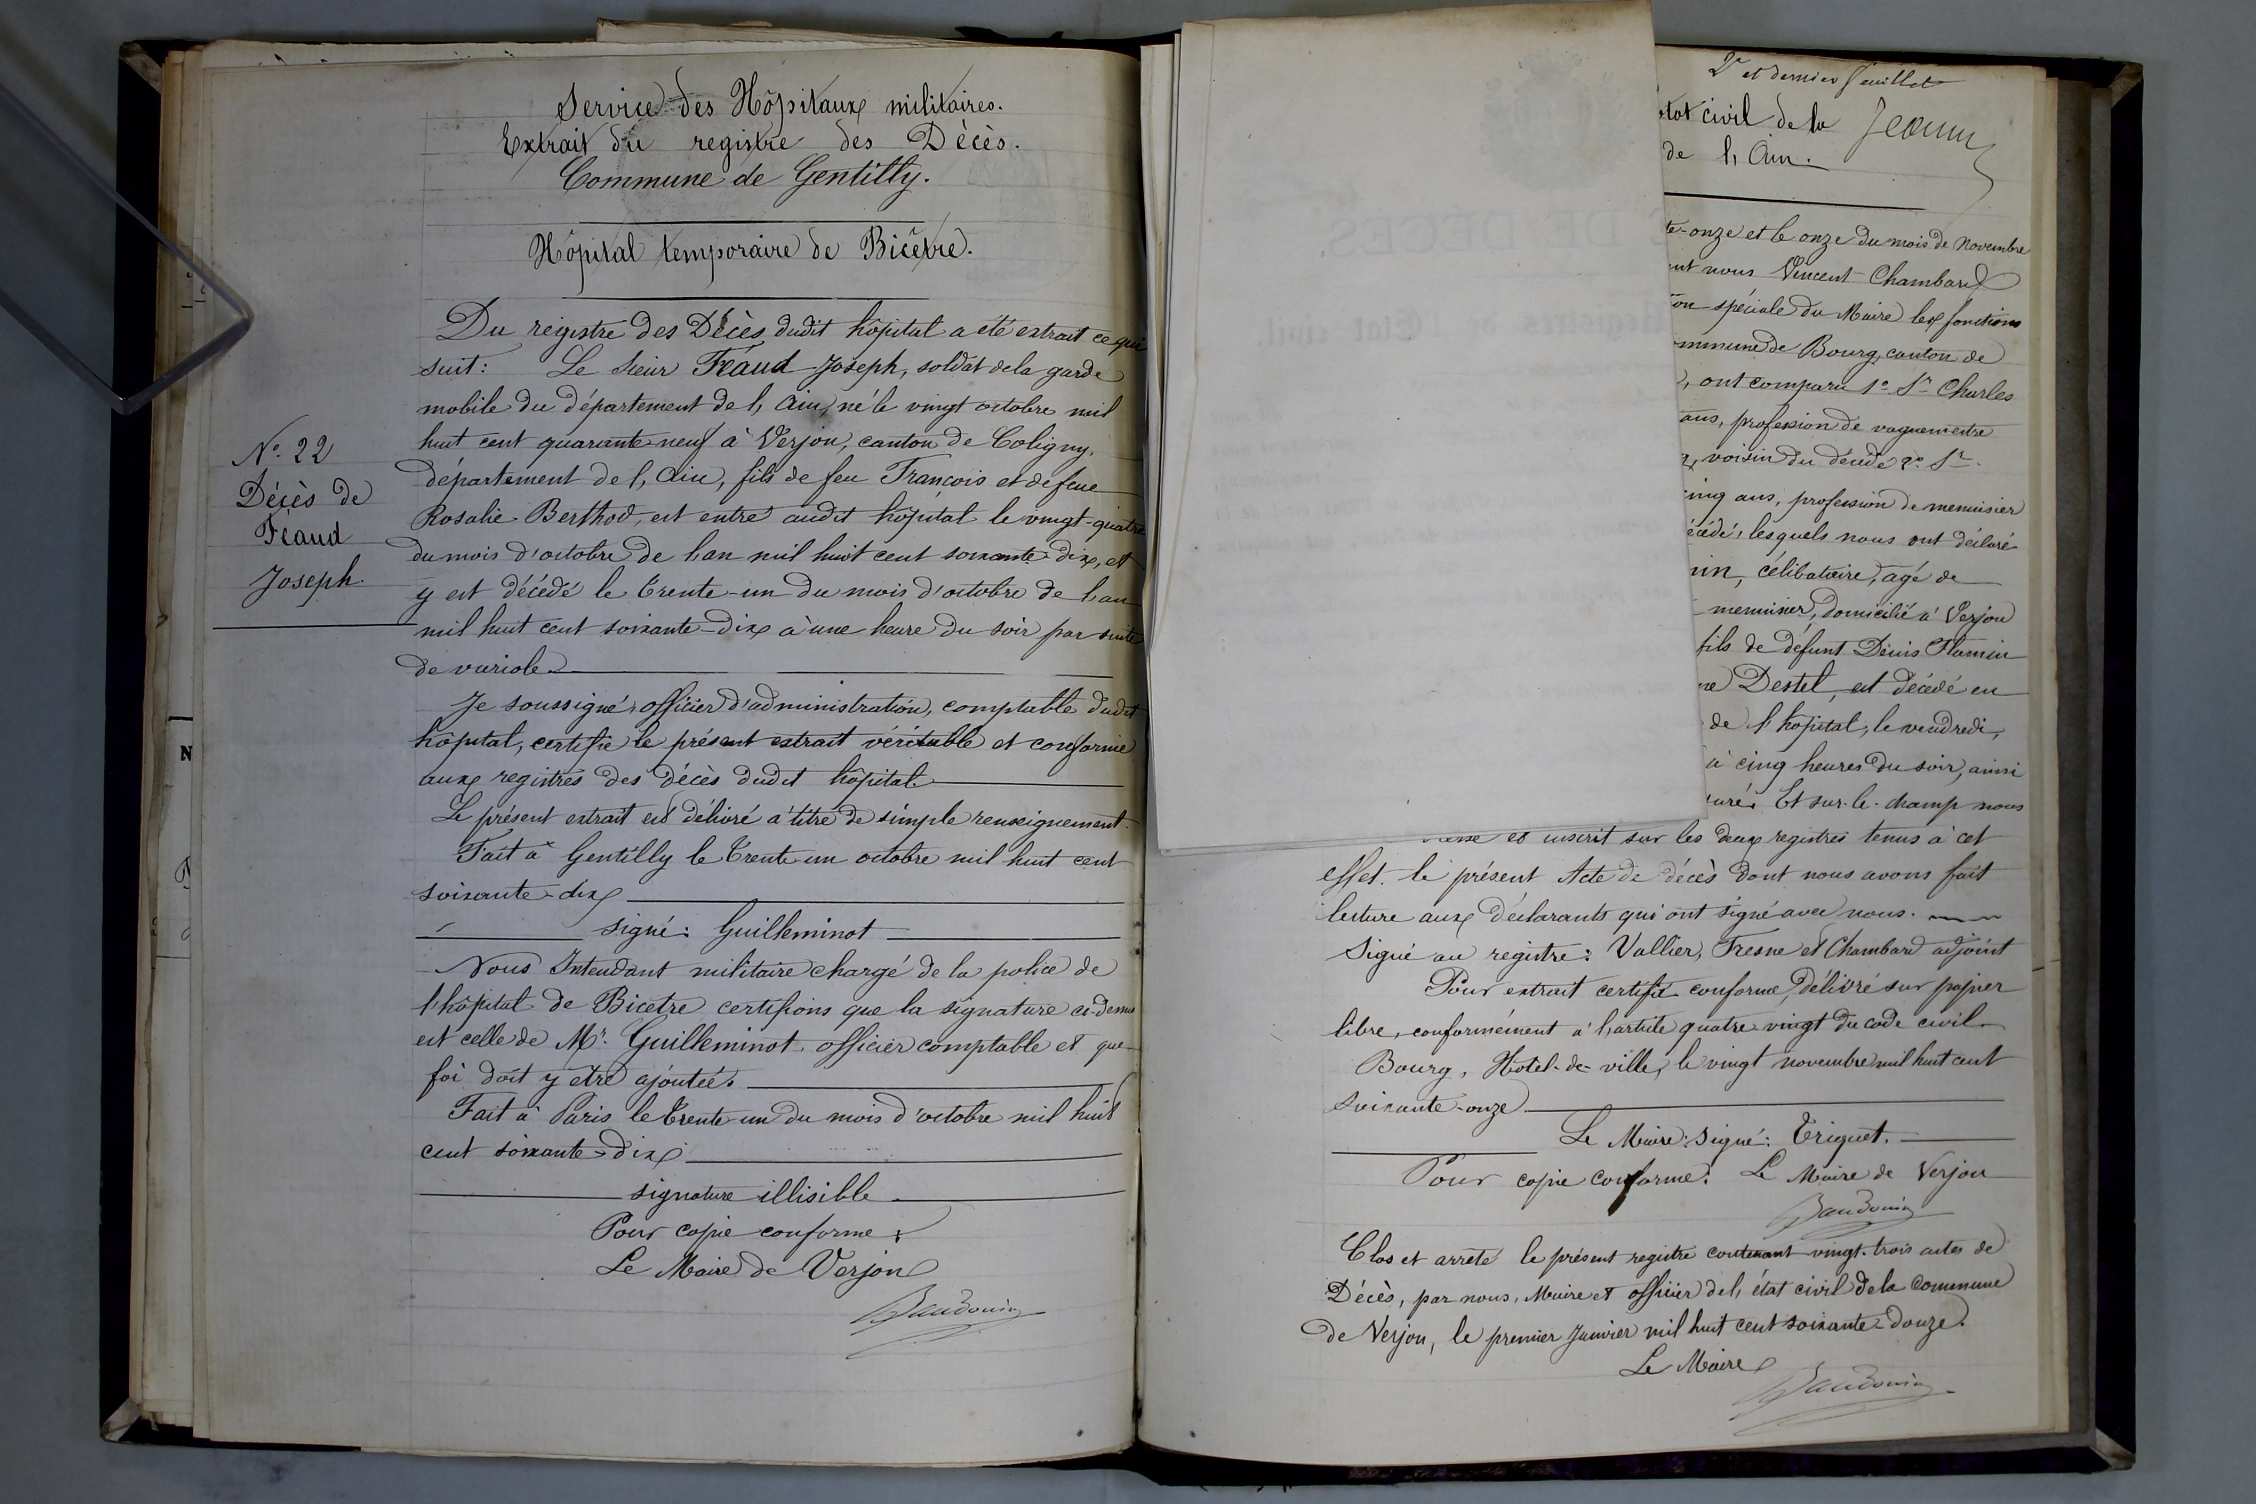 Service des Hôpitaux militaires.
Extrait du registre des Décès.
Commune de Gentilly.
Hôpital temporaire de Bicêtre.
N° 22
Décès de
Féaud
Joseph.
Du régistre des Décès dudit hôpital a été extrait ce qui
suit : Le sieur Féaud Joseph, soldat de la garde
mobile du département de l, Ain, né le vingt octobre mil
huit cent quarante neuf à Verjon, canton de Coligny,
département de l, Ain, fils de feu François et de feue
Rosalie Berthod, est entré audit hôpital le vingt-quatre
du mois d'octobre de l, an mil huit cent soixante dix, et
y est décédé le trente-un du mois d'octobre de l, an
mil huit cent soixante-dix à une heure du soir par suite
de variole.
Je soussigné officier d'administration, comptable dudit
hôpital, certifie le présent extrait véritable et conforme
aux registres des décès dudit hôpital.
Le présent extrait est délivré à titre de simple renseignement.
Fait à Gentilly le trente un octobre mil huit cent
soixante-dix
signé : Guilleminot
Nous Intendant militaire chargé de la police de
l'hôpital de Bicetre certifions que la signature ci-dessus
est celle de Mr. Guilleminot officier comptable et que
foi doit y être ajoutée.
Fait à Paris le trente un du mois d'octobre mil huit
cent soixante-dix
signature illisible
Pour copie conforme :
Le Maire de Verjon
Baudouin
2e et dernier feuillet
état civil de la Jeann
de l, Ain.
te-onze et le onze du mois de Novembre
ant nous Vincent Chambard
ion spéciale du Maire les fonctions
ommune de Bourg, canton de
, ont comparu 1° Sr Charles
ans, profession de vaguemestre
, voisin du décédé 2° Sr.
inq ans, profession de menuisier
écédé, lesquels nous ont déclaré
min, célibataire, agé de
menuisier, domicilié à Verjon
fils de défunt Denis Flamin
ne Destel, est décédé en
de l'hôpital, le vendredi,
à cinq heures du soir, ainsi
suré. Et sur-le-champ nous
et inscrit sur les deux registres tenus à cet
effet. le présent Acte de décès dont nous avons fait
lecture aux déclarants qui ont signé avec nous.
Signé au registre : Vallier, Fresne et Chambard adjoint
Pour extrait certifié conforme, délivré sur papier
libre, conformément à l, article quatre vingt du code civil
Bourg, Hotel-de-ville, le vingt novembre mil huit cent
soixante-onze
Le Maire signé : Triquet.
Pour copie conforme. Le Maire de Verjon
Baudouin
Clos et arreté le présent registre contenant vingt-trois actes de
Décès, par nous, Maire et officier de l, état civil de la Commune
de Verjon, le premier Janvier mil huit cent soixante-douze.
Le Maire
Baudouin